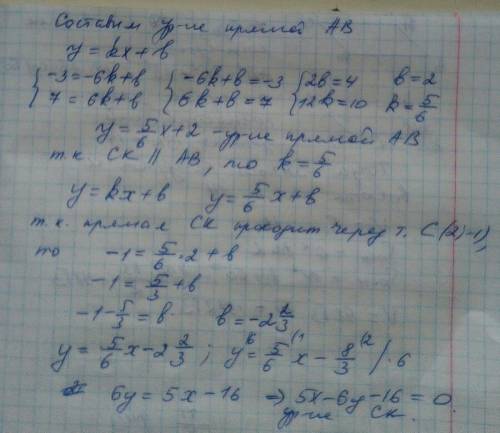 Составим ур-ие прямой АВ
y = kx + b
{ -3 = -6k + b { -6k + b = -3 { 2b = 4 b = 2
{ 7 = 6k + b { 6k + b = 7 { 12k = 10 k = 5/6
y = 5/6 x + 2 - ур-ие прямой АВ
т.к. СК || АВ, то k = 5/6
y = kx + b y = 5/6 x + b
т.к. прямая СК проходит через т. С(2;-1),
то -1 = 5/6 · 2 + b
-1 = 5/3 + b
-1 - 5/3 = b b = -2 2/3
y = 5/6 x - 2 2/3 ; y = 5/6 x - 8/3 / · 6
6y = 5x - 16 ⇒ 5x - 6y - 16 = 0
ур-ие СК.